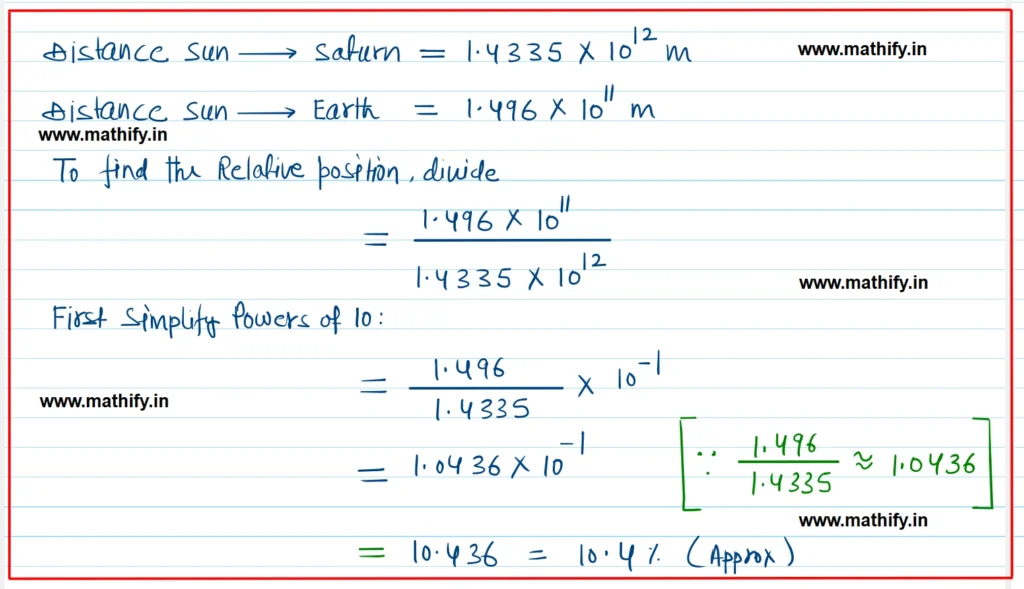 Distance sun ⟶ Saturn = 1.4335 × 10¹² m www.mathify.in
Distance sun ⟶ Earth = 1.496 × 10¹¹ m
www.mathify.in
To find the Relative position, divide
= 1.496 × 10¹¹ / 1.4335 × 10¹²
www.mathify.in
First Simplify Powers of 10:
= 1.496 / 1.4335 × 10⁻¹
www.mathify.in
= 1.0436 × 10⁻¹ [∵ 1.496 / 1.4335 ≈ 1.0436]
www.mathify.in
= 10.436 = 10.4 % (Approx)